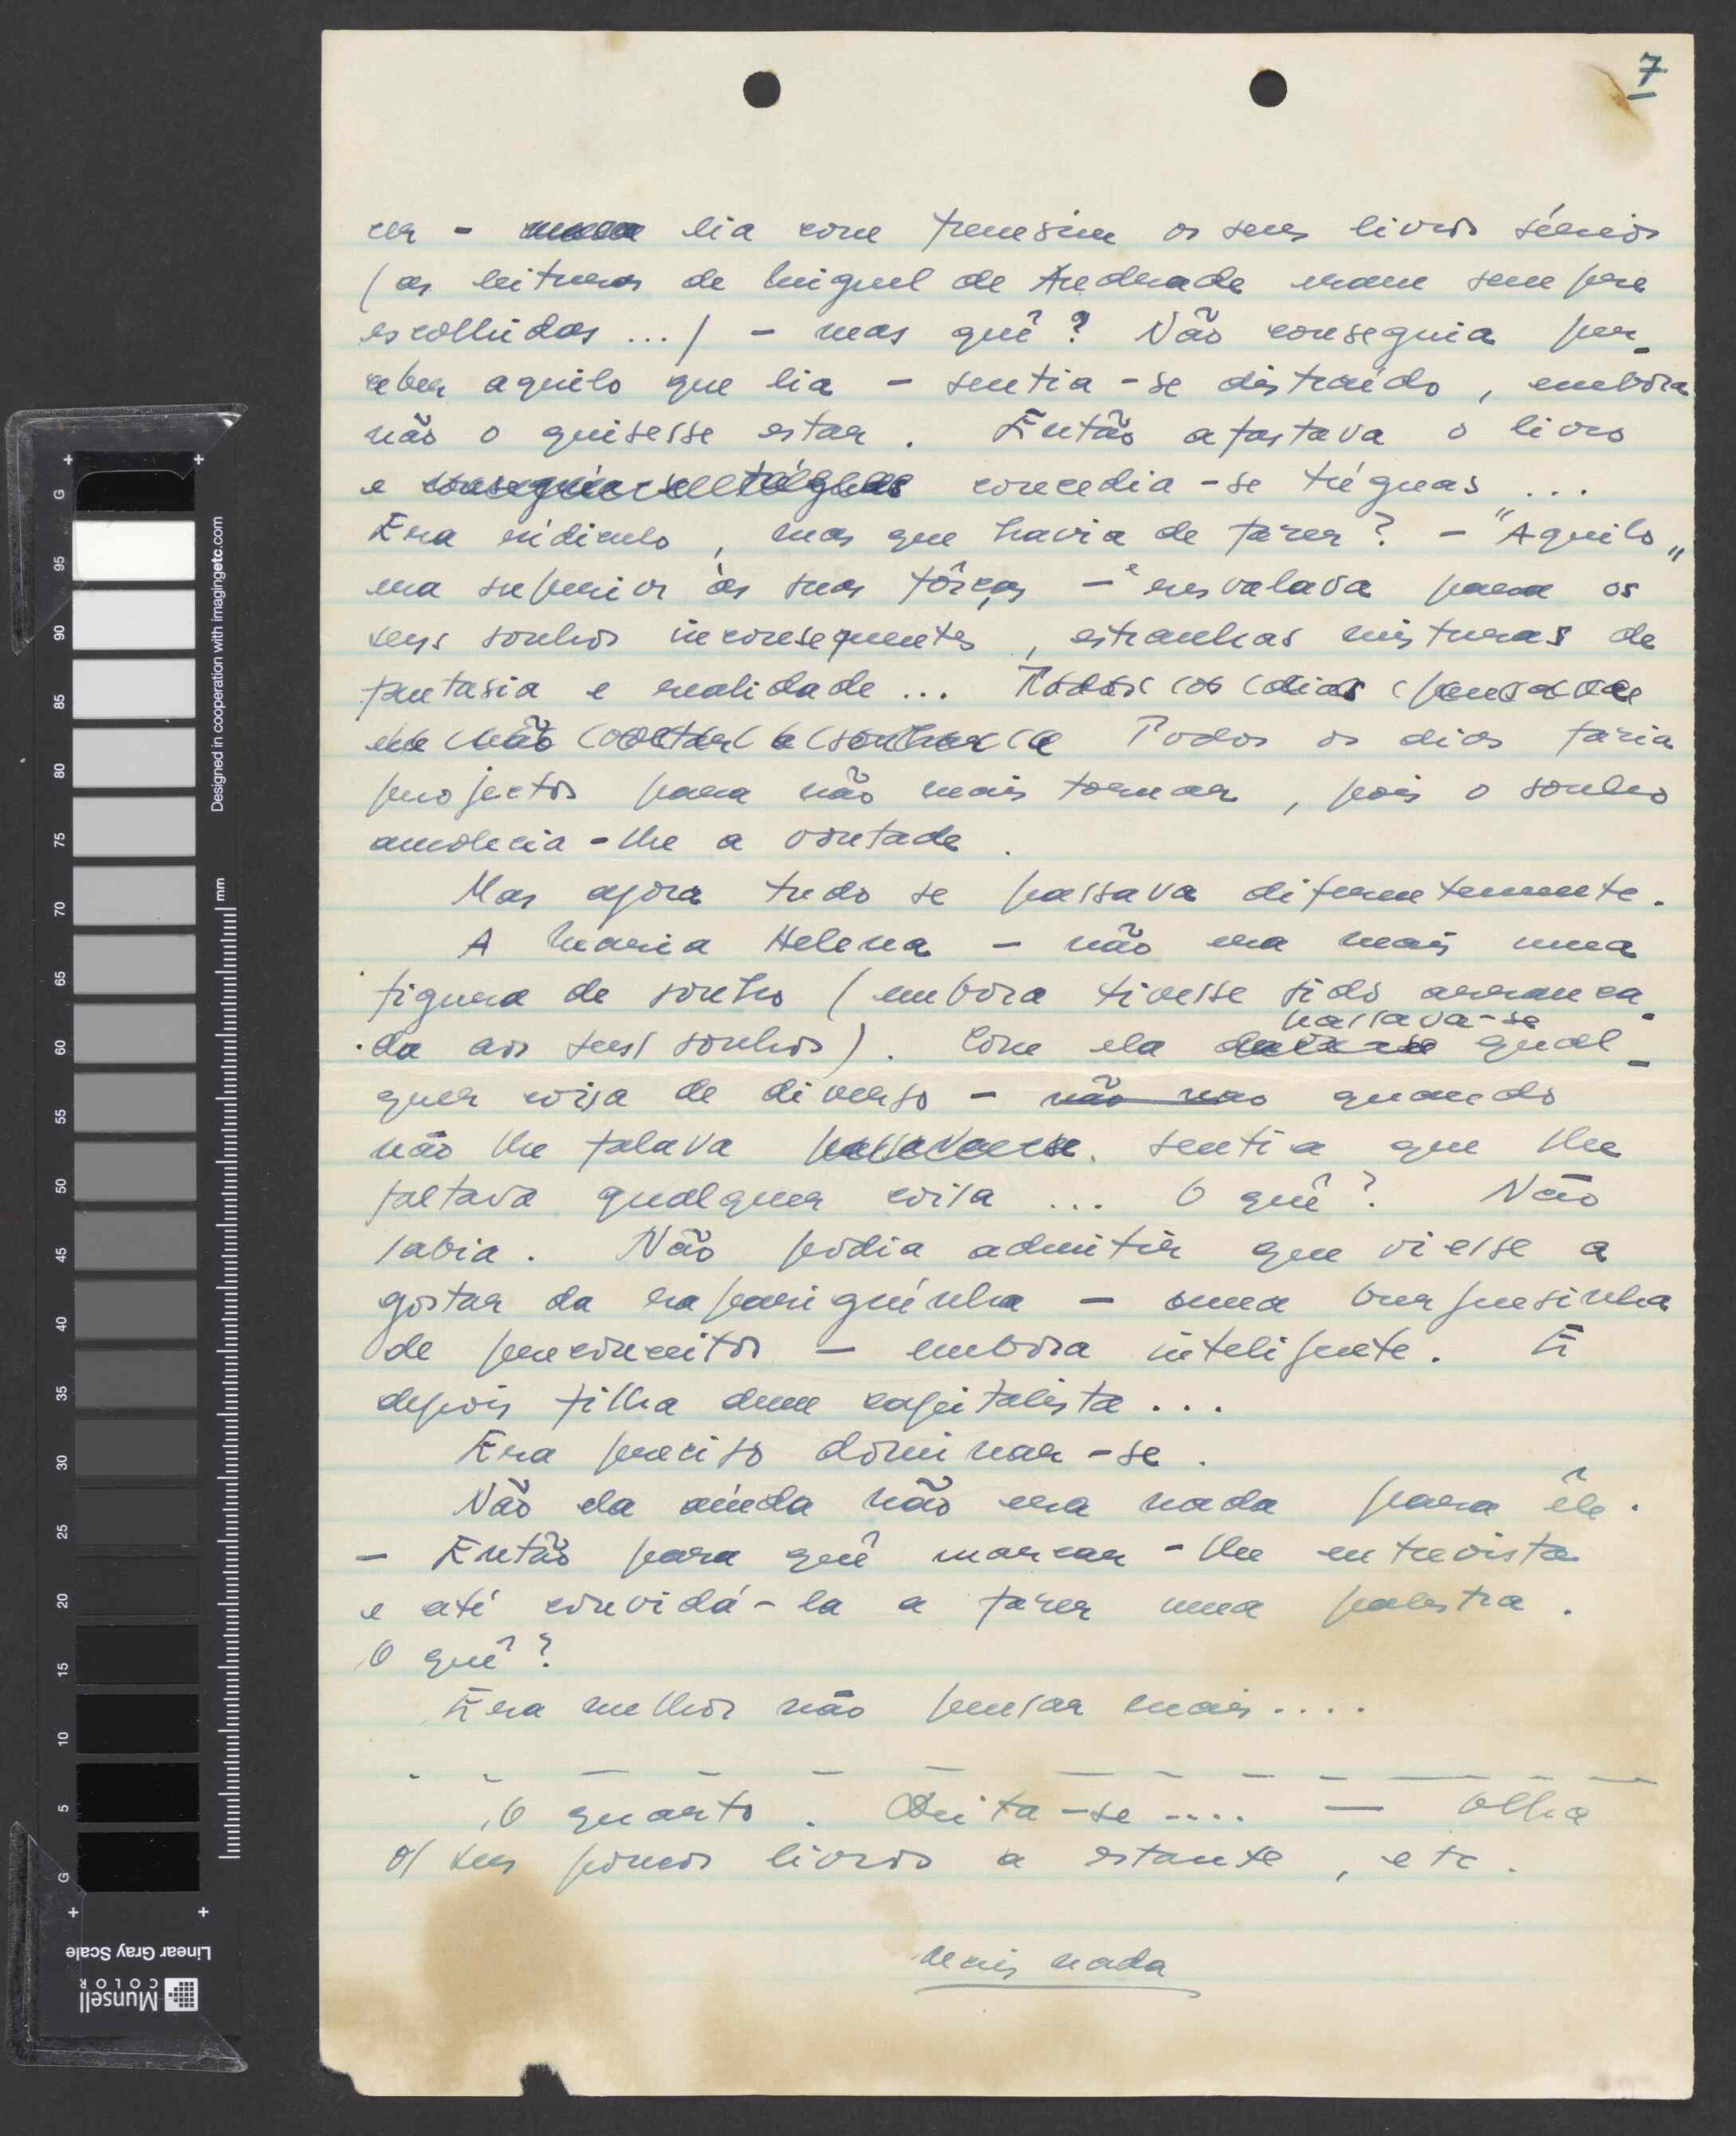 7
cer - lia com frenesim os seus livros sérios
(as leituras de Miguel de Andrade eram sempre
escolhidas ...) - mas quê? Não conseguia per-
ceber aquilo que lia - sentia-se distraído, embora
não o quisesse estar. Então afastava o livro
e conseguia-se tréguas concedia-se tréguas ...
Era ridículo, mas que havia de fazer? - "Aquilo"
era superior às suas fôrças - e resvalava para os
seus sonhos inconsequentes, estranhas misturas de
fantasia e realidade ... Todos os dias pensava
em não voltar a sonhar e Todos os dias fazia
projectos para não mais tornar, pois o sonho
amolecia-lhe a vontade.
Mas agora tudo se passava diferentemente.
A Maria Helena - não era mais uma
figura de sonho (embora tivesse sido arranca-
passava-se
-da aos seus sonhos). Com ela dava-se qual-
quer coisa de diverso - não nao quando
não lhe falava passava-se sentia que lhe
faltava qualquer coisa ... O quê? Não
sabia. Não podia admitir que viesse a
gostar da rapariguinha - uma burguesinha
de preconceitos - embora inteligente. E
depois filha dum capitalista...
Era preciso dominar-se.
Não ela ainda não era nada para êle.
- Então para quê marcar-lhe entrevista
e até convidá-la a fazer uma palestra.
O quê?
Era melhor não pensar mais....
O quarto. Deita-se .... — Olha
os seus poucos livros a estante, etc.
Mais nada
Designed in cooperation with imagingetc.com
mm
G
95
90
85
80
75
70
65
60
55
50
45
40
35
30
25
20
15
10
5
G
Linear Gray Scale
Munsell
COLOR